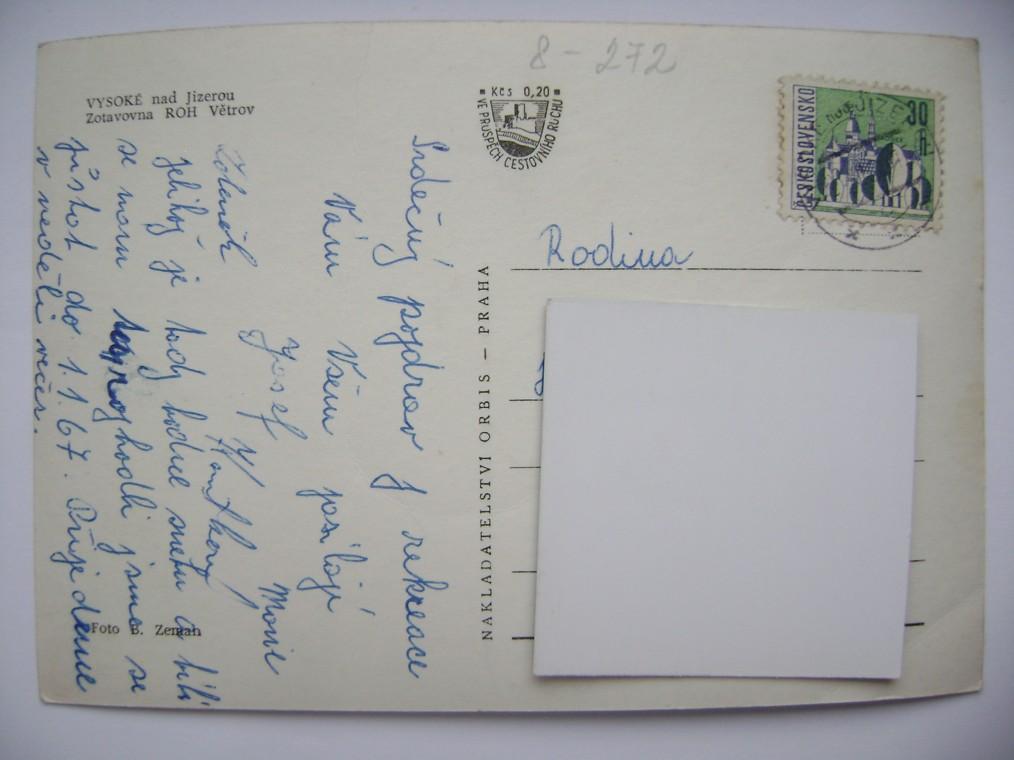 8-272
VYSOKÉ nad Jizerou
Zotavovna ROH Větrov
Kčs 0,20
VE PROSPĚCH CESTOVNÍHO RUCHU
ČESKOSLOVENSKO
30 h
JIZE
Srdečný pozdrav z rekreace
Vám Všem posílají
Josef Marie
Jelikož je tady hodne snehu a
se mám rozhodli jsme se
zůstat do 1.1.67. Přijedeme
v neděli večer.
Rodina
NAKLADATELSTVÍ ORBIS – PRAHA
Foto B. Zeman